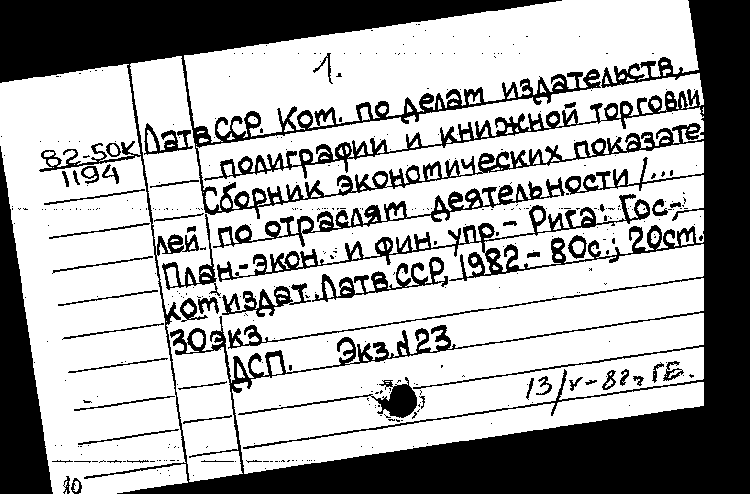 1.
82-50к
1194
Латв ССР. Ком. по делам издательств,
полиграфии и книжной торговли
Сборник экономических показате-
лей по отраслям деятельности /...
План.-экон. и фин. упр.- Рига: Гос-
комиздат Латв.ССР, 1982.- 80с.; 20см.
30экз.
ДСП. Экз.№23.
13/V-82г. ГБ.
10